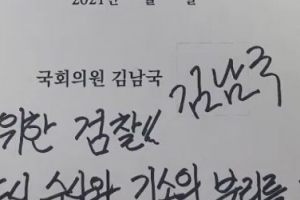 2021년   월   일
국회의원 김남국 김남국
위한 검찰!!
수사와 기소의 분리를